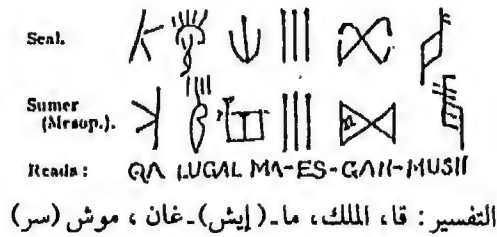 Seal.
Sumer
(Mesop.).
Reads: QA LUGAL MA-ES-GAN-MUSH
التفسير: قا، الملك، ما-(إيش)-غان، موش (سر)